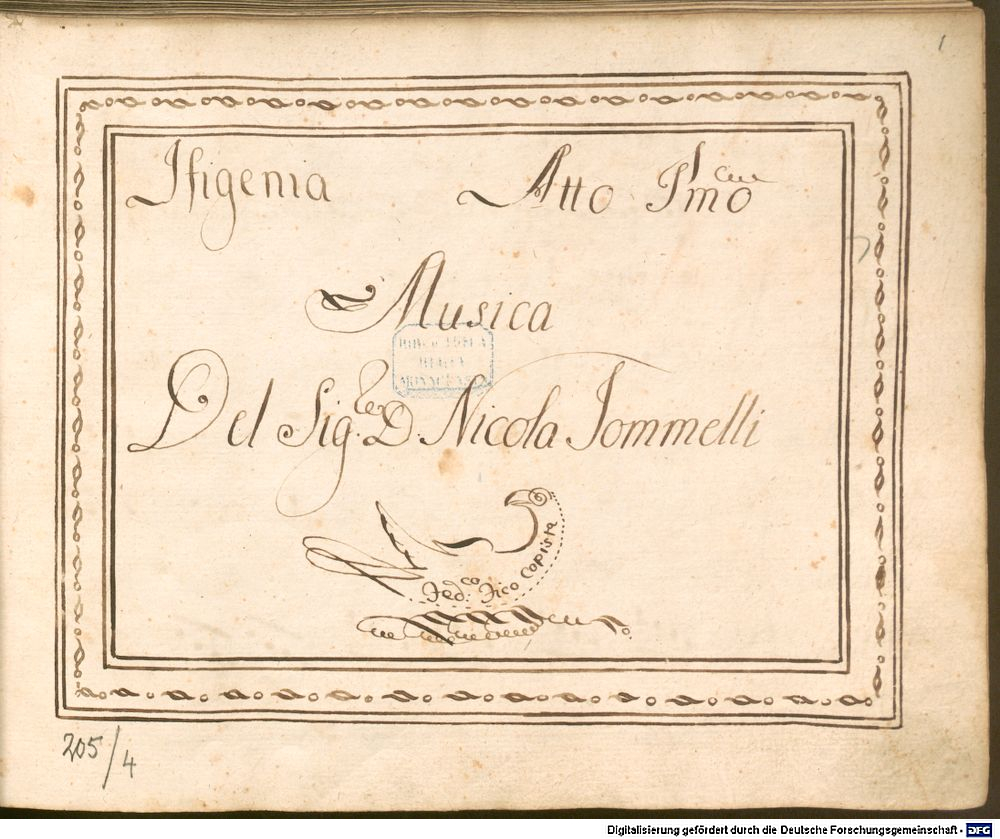 1
Ifigenia Atto Pmo
Musica
BIBLIOTHECA
REGIA
MONACENSIS
Del Sig.re D. Nicola Jommelli
Fed.co Fico Copista
205/4
Digitalisierung gefördert durch die Deutsche Forschungsgemeinschaft - DFG